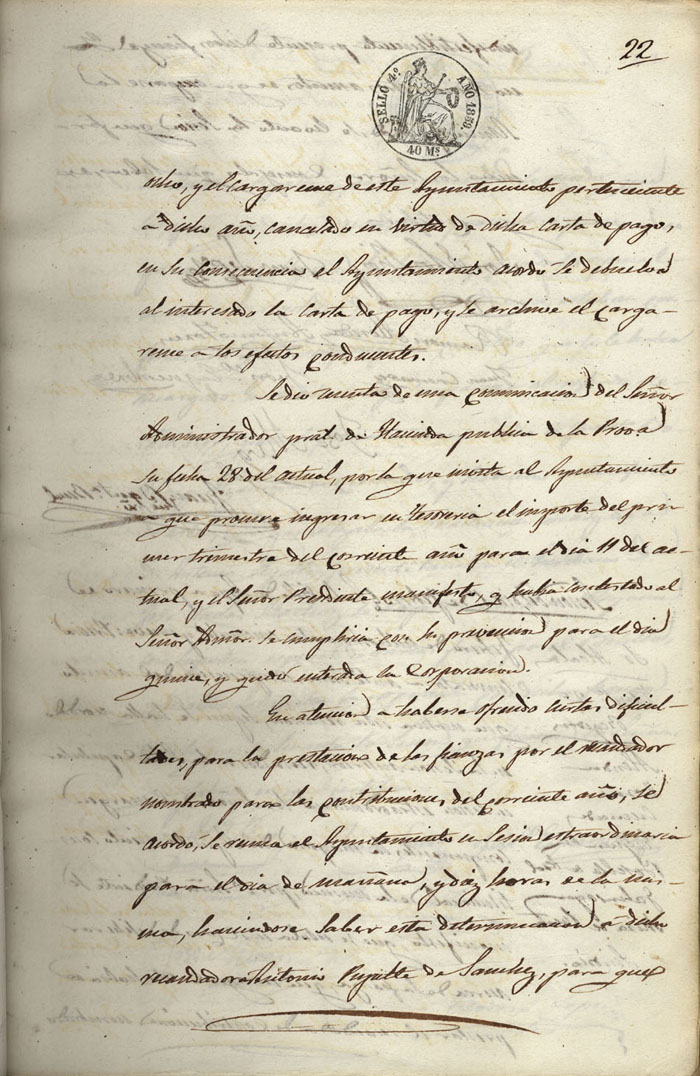 22
SELLO 4º AÑO 1859.
40 Ms
ocho, y el cargareme de este Ayuntamiento perteneciente
a dicho año, cancelado en virtud de dicha carta de pago,
en su consecuencia el Ayuntamiento acordó se debuelva
al interesado la carta de pago, y se archive el carga-
reme a los efectos conducentes.
Se dio cuenta de una comunicacion del Señor
Administrador pral. de Hacienda publica de la Prova
su fecha 28 del actual, por la que invita al Ayuntamiento
a que procure ingresar en Tesoreria el importe del pri-
mer trimestre del corriente año para el dia 11 del ac-
tual, y el Señor Presidente manifestó, q habia contestado al
Señor Admor. se cumpliria con su prevencion para el dia
quince, y quedó enterada la Corporacion.
En atencion a haberse ofrecido ciertas dificul-
tades, para la prestacion de las fianzas por el recaudador
nombrado para las contribuciones del corriente año, se
acordó, se reuna el Ayuntamiento en Sesion extraordinaria
para el dia de mañana, y diez horas de la mis-
ma, haciendose saber esta determinacion a dicho
recaudador Antonio de Sanchez, para que